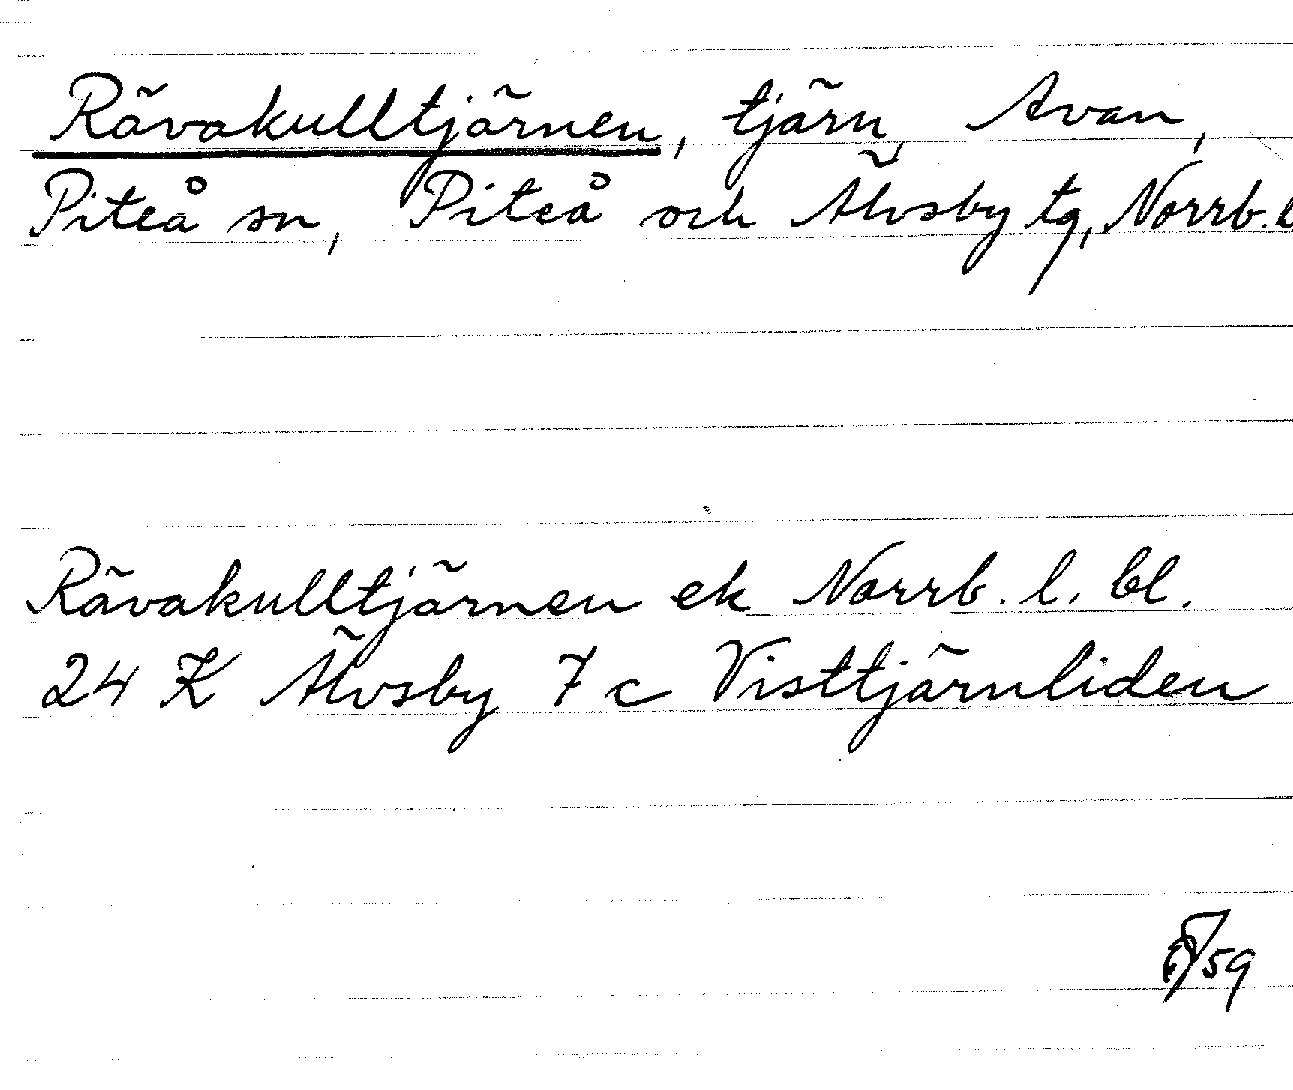 Rävakulltjärnen, tjärn, Avan,
Piteå sn, Piteå och Älvsby tg, Norrb. l
Rävakulltjärnen ek Norrb. l. bl.
24 K Älvsby 7 c Visttjärnliden
59